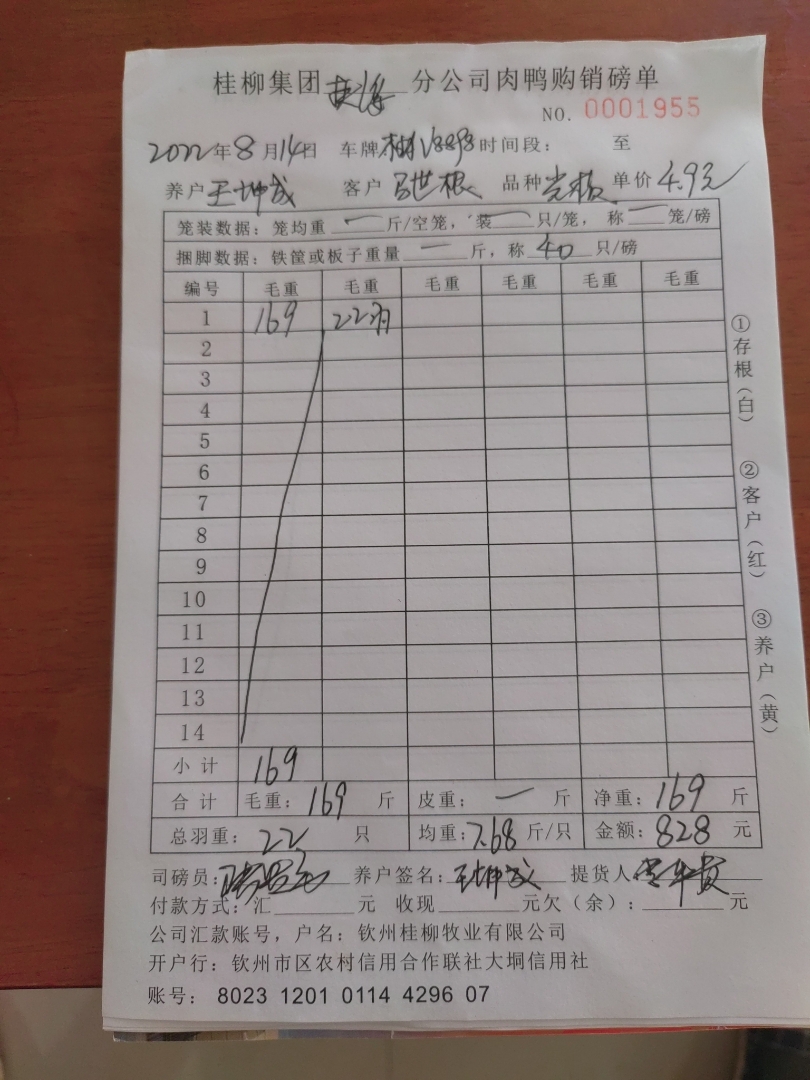 桂柳集团 分公司肉鸭购销磅单
NO. 0001955
2022年8月14日 车牌 时间段： 至
养户王坤成 客户 马世根 品种 单价4.9元
笼装数据：笼均重 一 斤/空笼，装 一 只/笼，称 一 笼/磅
捆脚数据：铁筐或板子重量 一 斤，称 40 只/磅
编号 毛重 毛重 毛重 毛重 毛重 毛重
1 169 22羽
2
3
4
5
6
7
8
9
10
11
12
13
14
小计 169
合计 毛重：169 斤 皮重：一 斤 净重：169 斤
总羽重：22 只 均重：7.68 斤/只 金额：828 元
司磅员： 养户签名：王坤成 提货人
付款方式：汇 元 收现 元欠（余）： 元
公司汇款账号，户名：钦州桂柳牧业有限公司
开户行：钦州市区农村信用合作联社大垌信用社
账号： 8023 1201 0114 4296 07
①存根（白）
②客户（红）
③养户（黄）